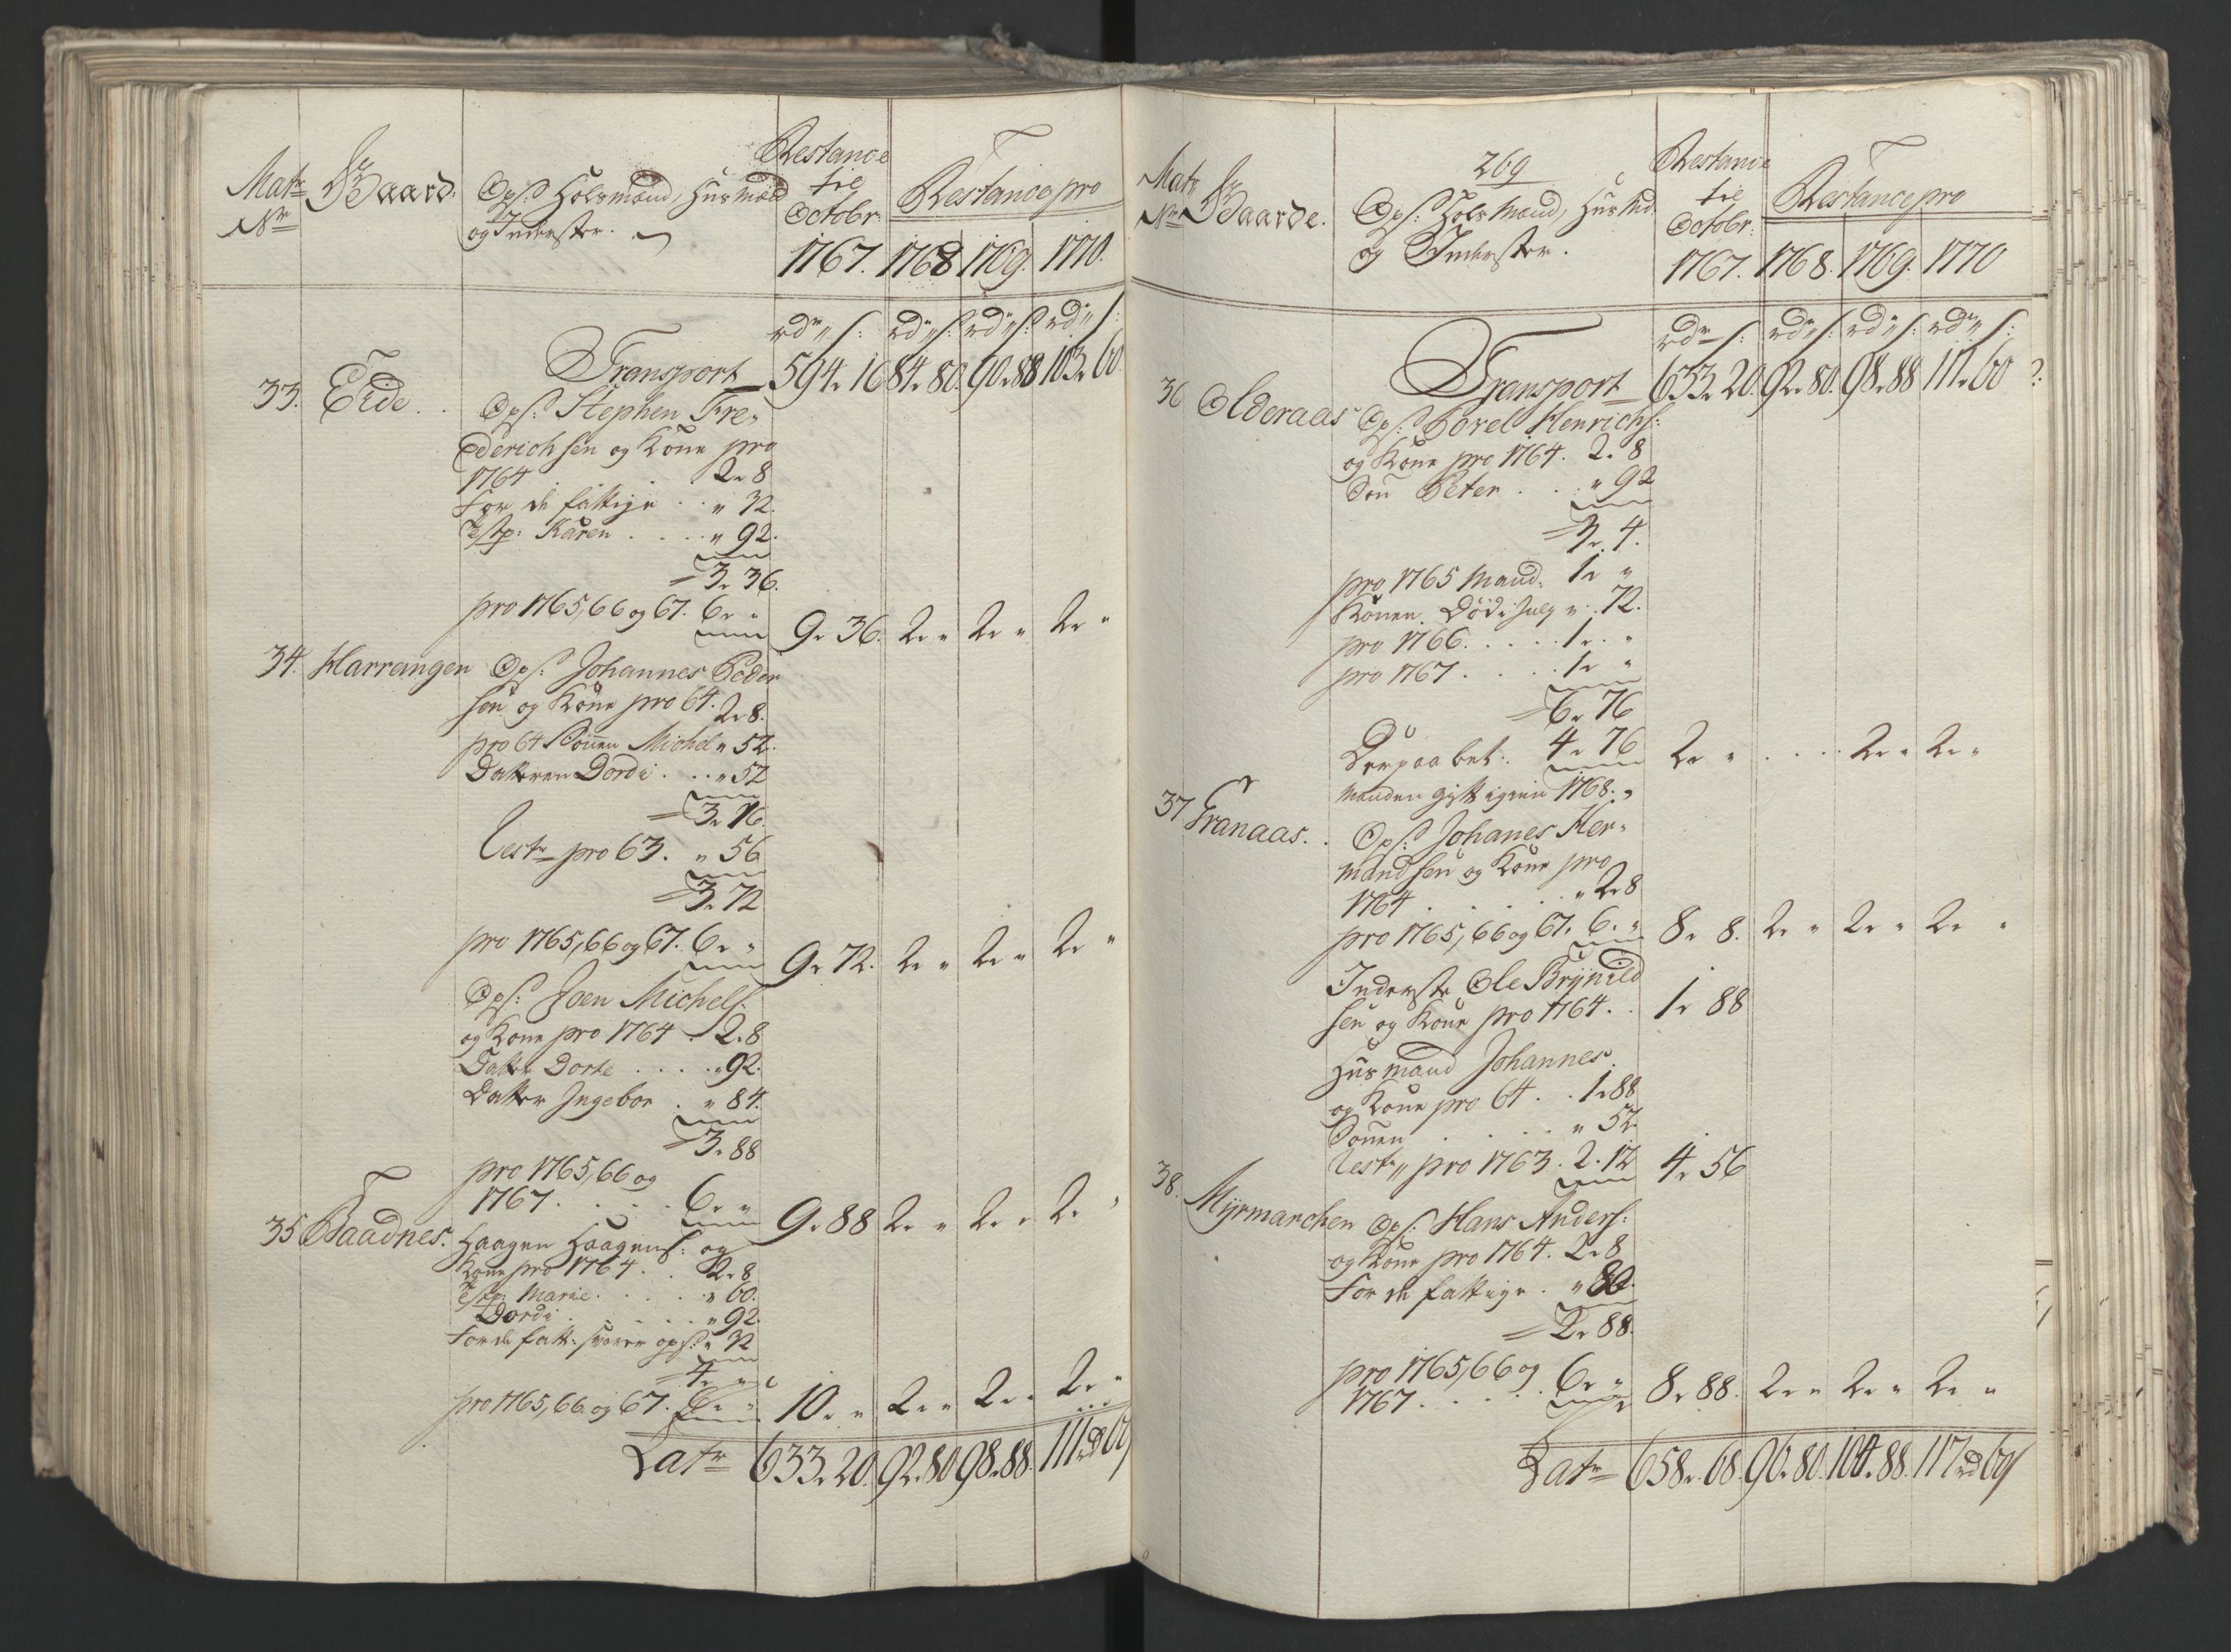 Matr Nr
Gaard:
Ops: Holsmænd, Husmænd
og Inderster.
Restance
til
Octobr:
1767.
Restance pro
1768 1769. 1770.
rdr s: rdr s: rdr s: rdr s:
Transport 594. 16 84. 80. 90. 88 103. 60
33. Eide. Ops: Stephen Fre-
derichsen og Kone pro
1764 . . . 2. 8
For de fattige . . " 32.
Estp: Karen . . . . " 92.
3. 36.
pro 1765, 66 og 67. 6. " 9. 36. 2. " 2. " 2. "
34. Harrangen Ops: Johannes Peder
sen og Kone pro 64. 2. 8.
pro 64 Sönnen Michel " 52.
Datteren Dordi . . . " 52
3. 16.
Rest pro 63. " 56
3. 72
pro 1765, 66 og 67. 6. " 9. 72. 2. " 2. " 2. "
Ops: Joen Michels:
og Kone pro 1764 . 2. 8
Datter Dorte . . . . " 92.
Datter Ingebor . " 84.
3. 88
pro 1765, 66 og
1767 . . . . 6. " 9. 88 2. " 2. " 2. "
35 Baadnes. Haagen Haagens: og
Kone pro 1764 . . 2. 8
Estp: Marie . . . . " 60.
Dordi . . . . . " 92.
For de fatt: svarer ops: " 32
4. "
pro 1765, 66 og 67. 6. " 10. " 2. " 2. " 2. "
Latr 633. 20. 92. 80 98. 88. 111 rd 60
269
Matr Nr
Gaarde.
Ops: Holsmænd, Husmd.
og Inderster.
Restance
til
Octobr:
1767.
Restance pro
1768. 1769. 1770
rdr s: rdr s: rdr s: rdr s:
Transport 633. 20. 92. 80. 98. 88 111. 60
36 Olderaas Ops: Povel Henrichs:
og Kone pro 1764. 2. 8
Søn Peter . . . " 92
3. 4.
pro 1765 Mand. 1. "
Konen Död i Julij " 72.
pro 1766 . . . . . 1. "
pro 1767 . . . . 1. "
6. 76
Derpaa bet: 4. 76 2. " . . . . 2. " 2. "
Manden gift igien 1768.
37 Granaas. Ops: Johanes Her-
mandsen og Kone pro
1764 . . . . . " 2. 8
pro 1765, 66 og 67. 6. " 8. 8. 2. " 2. " 2. "
Inderste Ole Brynild
sen og Kone pro 1764. . 1. 88
Husmand Johannes.
og Kone pro 64 . . 1. 88
Sönen . . . . . " 52.
Rest" pro 1763. 2. 12 4. 56
38. Myrmarchen Ops: Hans Anders:
og Kone pro 1764. 2. 8
For de fattige . " 80.
2. 88.
pro 1765, 66 og
1767 . . . . 6. " 8. 88. 2. " 2. " 2. "
Latr 658. 68. 96. 80. 104. 88. 117 rd 60